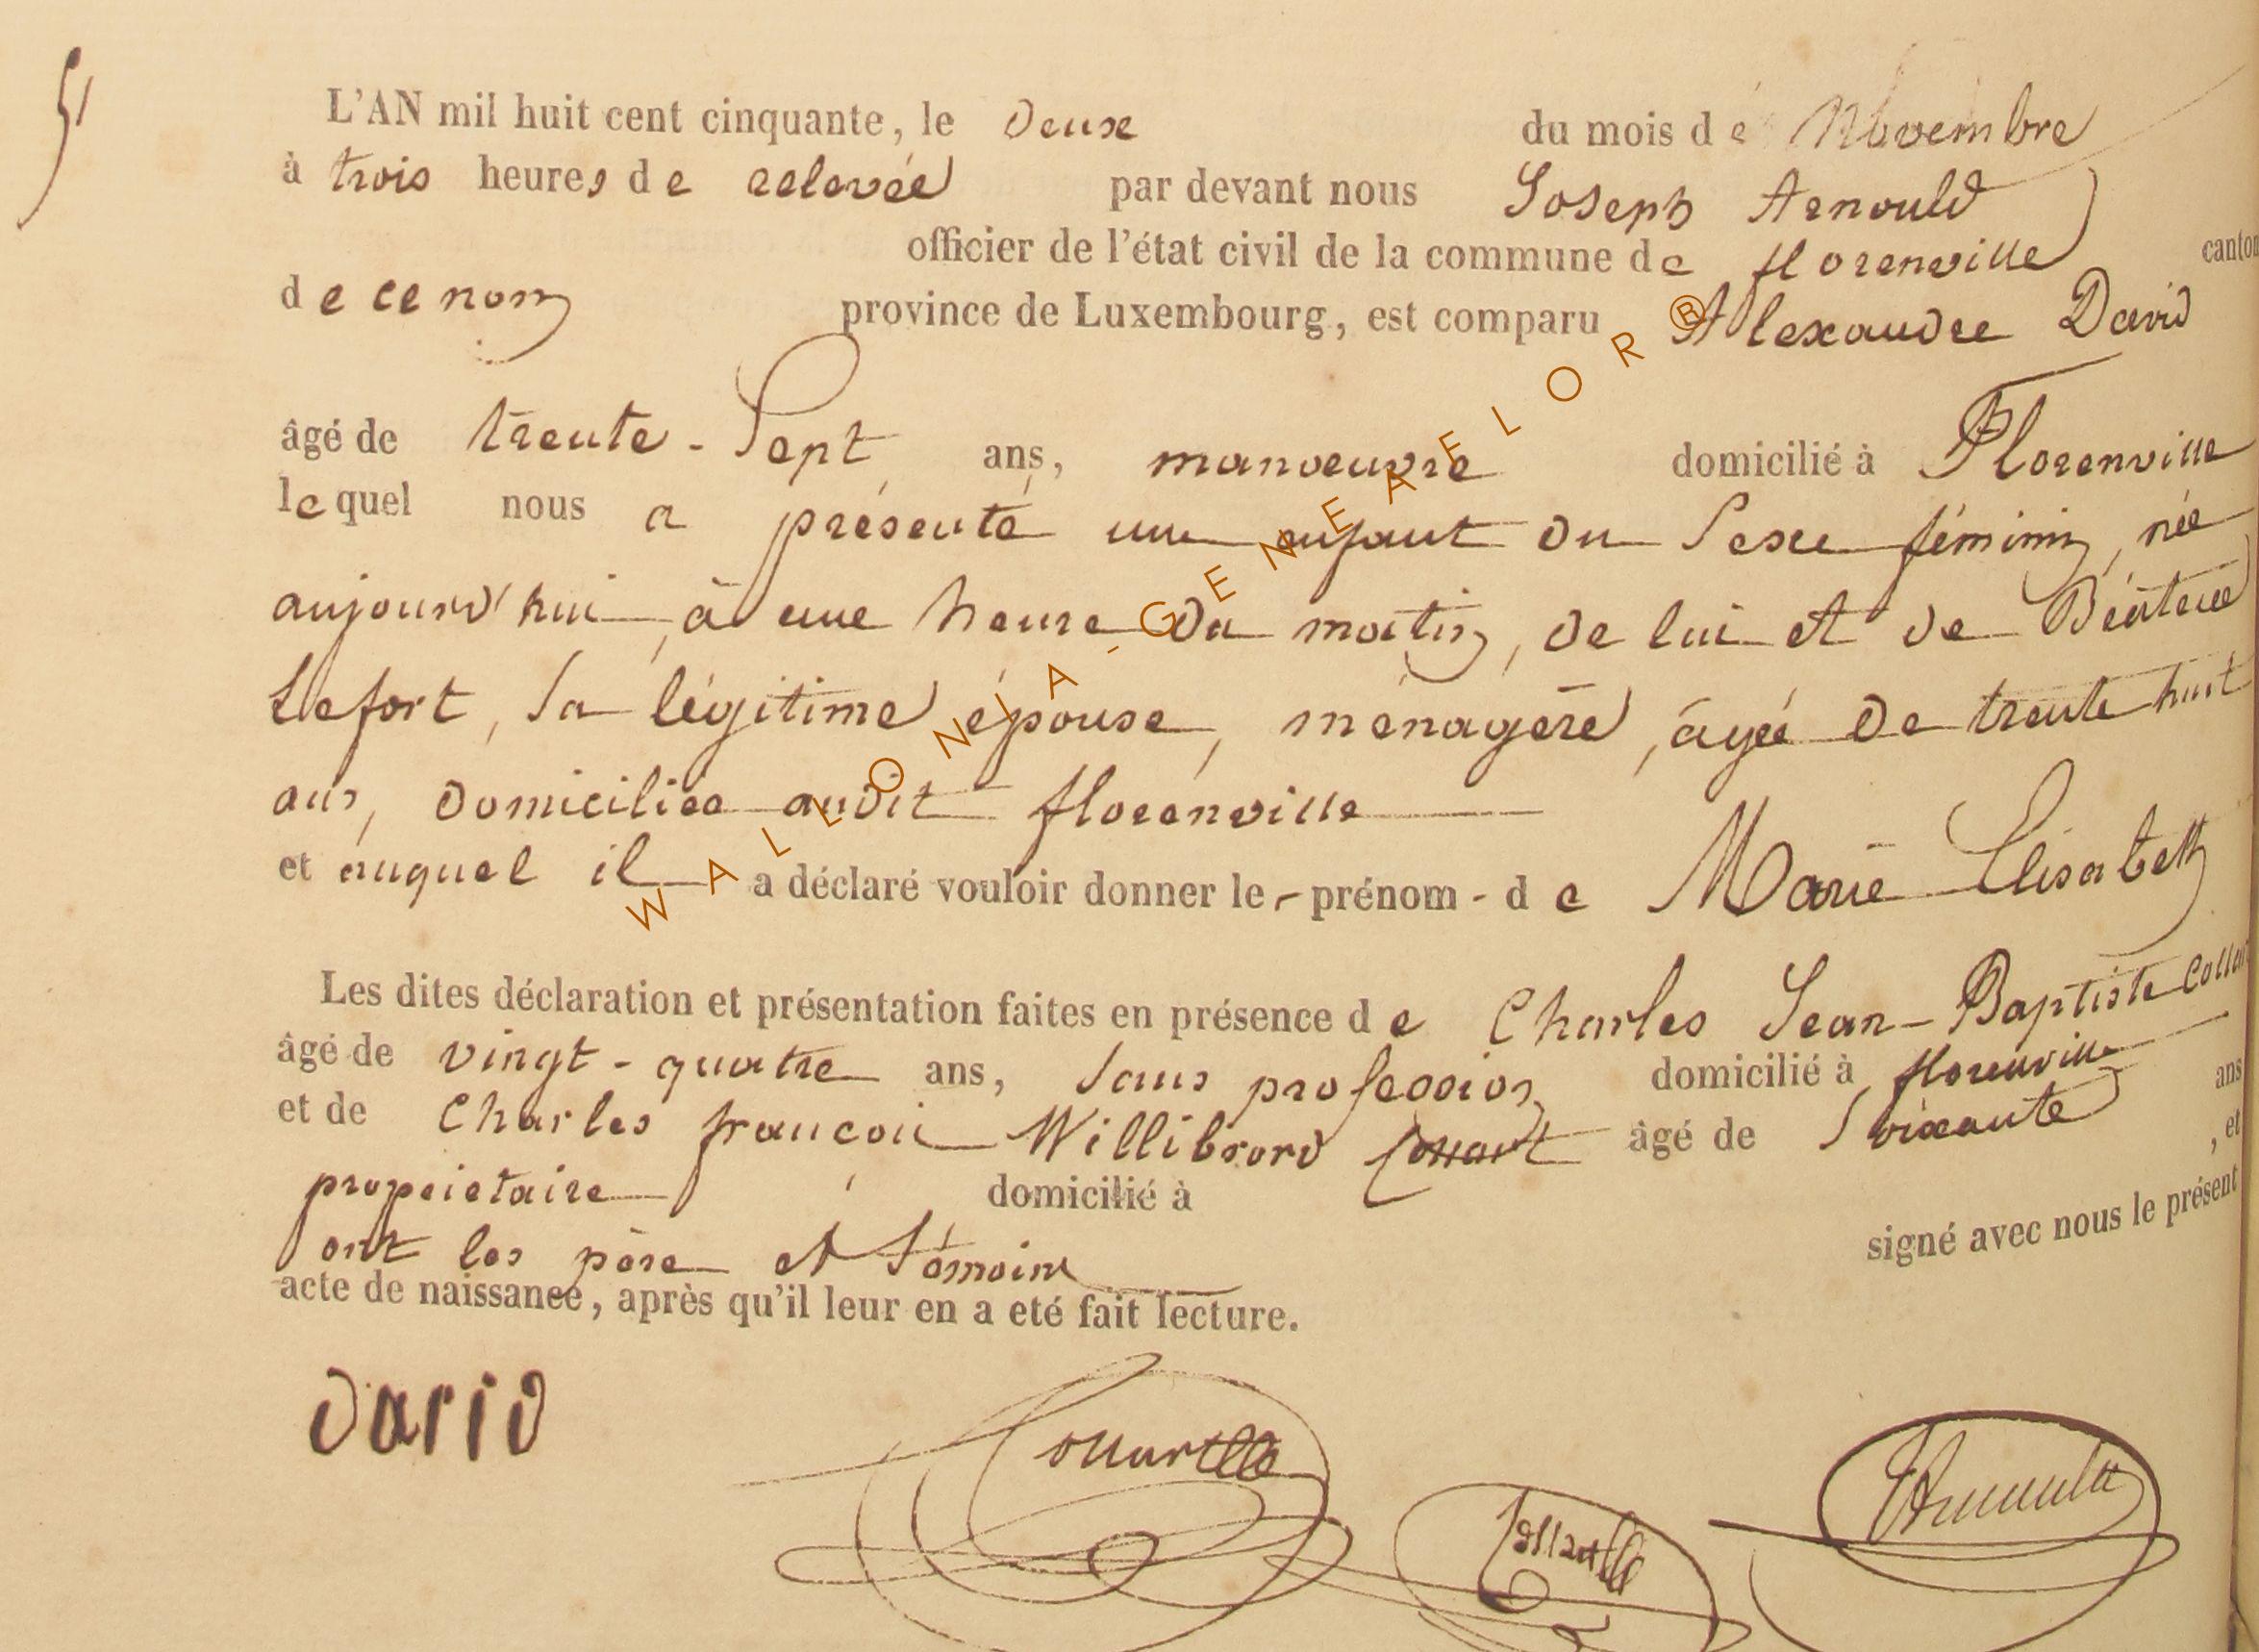 51
L'AN mil huit cent cinquante, le Deux du mois de Novembre
à trois heures de relevée par devant nous Joseph Arnould
officier de l'état civil de la commune de florenville canton
de ce nom province de Luxembourg, est comparu Alexandre David
âgé de trente-Sept ans, manoeuvre domicilié à Florenville
lequel nous a présenté un enfant du Sexe féminin, née
aujourd'hui, à une heure du matin, de lui et de
Lefort, Sa légitime épouse, ménagère, âgée de trente huit
ans, domiciliée audit florenville
et auquel il a déclaré vouloir donner le - prénom - de Marie Elisabeth
Les dites déclaration et présentation faites en présence de Charles Jean-Baptiste
âgé de vingt-quatre ans, Sans profession domicilié à florenville
et de Charles françois Willibrord âgé de Soixante ans
propriétaire domicilié à , et
ont les père et témoins signé avec nous le présent
acte de naissance, après qu'il leur en a eté fait lecture.
David
WALLONIA-GENEAFLOR®